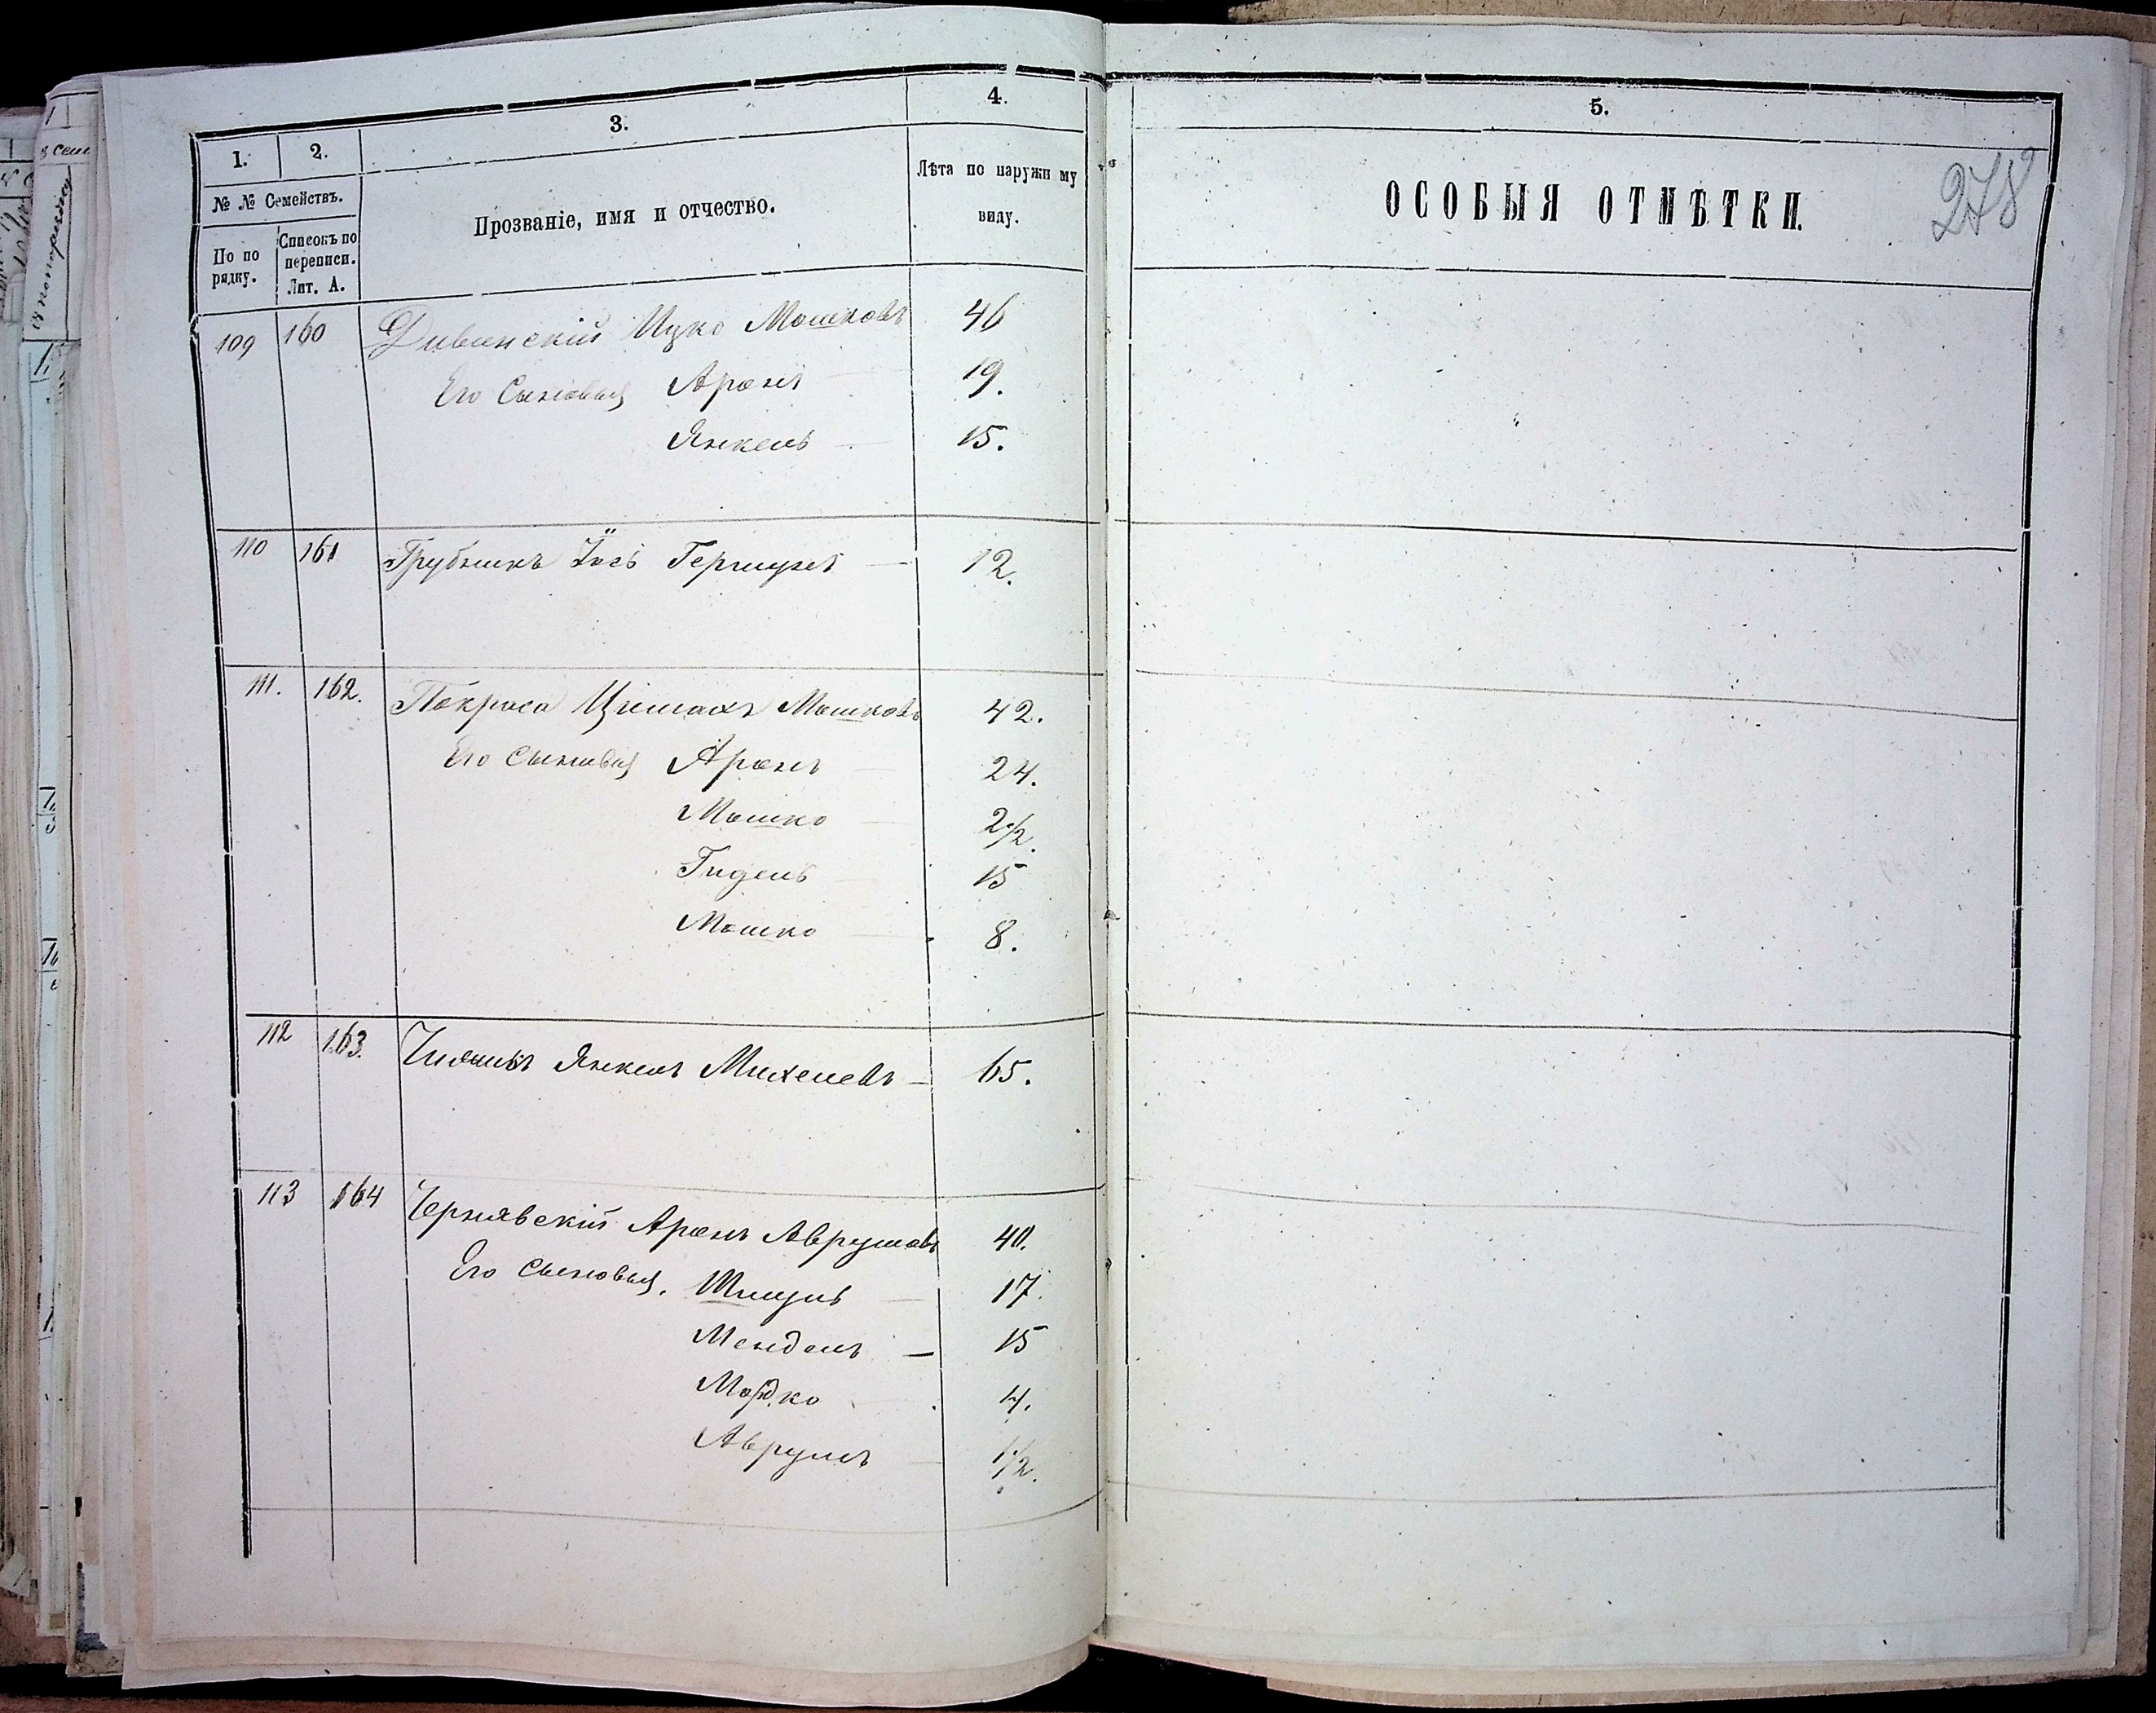 1. 2. 3. 4. 5.
№ № Семействъ.
По по рядку.
Списокъ по переписи. Лит. А.
Прозваніе, имя и отчество.
Лѣта по наружн му виду.
ОСОБЫЯ ОТМѢТКИ.
278
109 160 Дивинскій Ицко Мошковъ 46
Его Сыновья Аронъ 19.
Янкель 15.
110 161 Грубникъ Іось Гершунъ 12.
111. 162. Покраса Мошковъ 42.
Его Сыновья Аронъ 24.
Мошко 2 1/2.
15
Мошко 8.
112 163. Янкель Михелевъ 65.
113 164 Чернявскій Аронъ Аврумовъ 40.
Его Сыновья, Шмуль 17.
Мендель 15
Мордко 4.
Аврумъ 1/2.